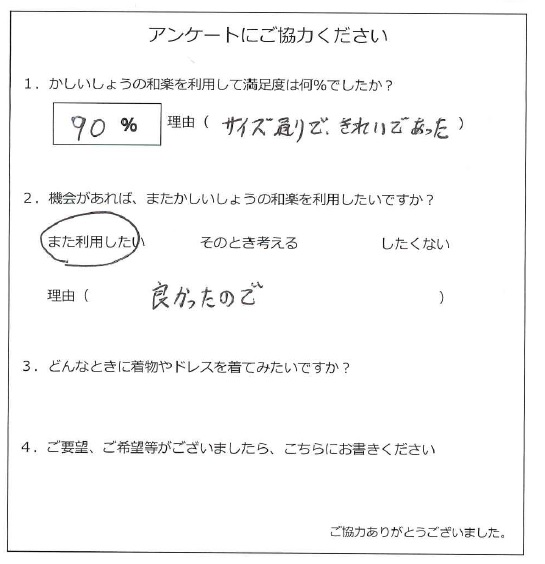 アンケートにご協力ください
1．かしいしょうの和楽を利用して満足度は何％でしたか？
90 % 理由（ サイズ通りで、きれいであった ）
2．機会があれば、またかしいしょうの和楽を利用したいですか？
また利用したい そのとき考える したくない
理由（ 良かったので ）
3．どんなときに着物やドレスを着てみたいですか？
4．ご要望、ご希望等がございましたら、こちらにお書きください
ご協力ありがとうございました。